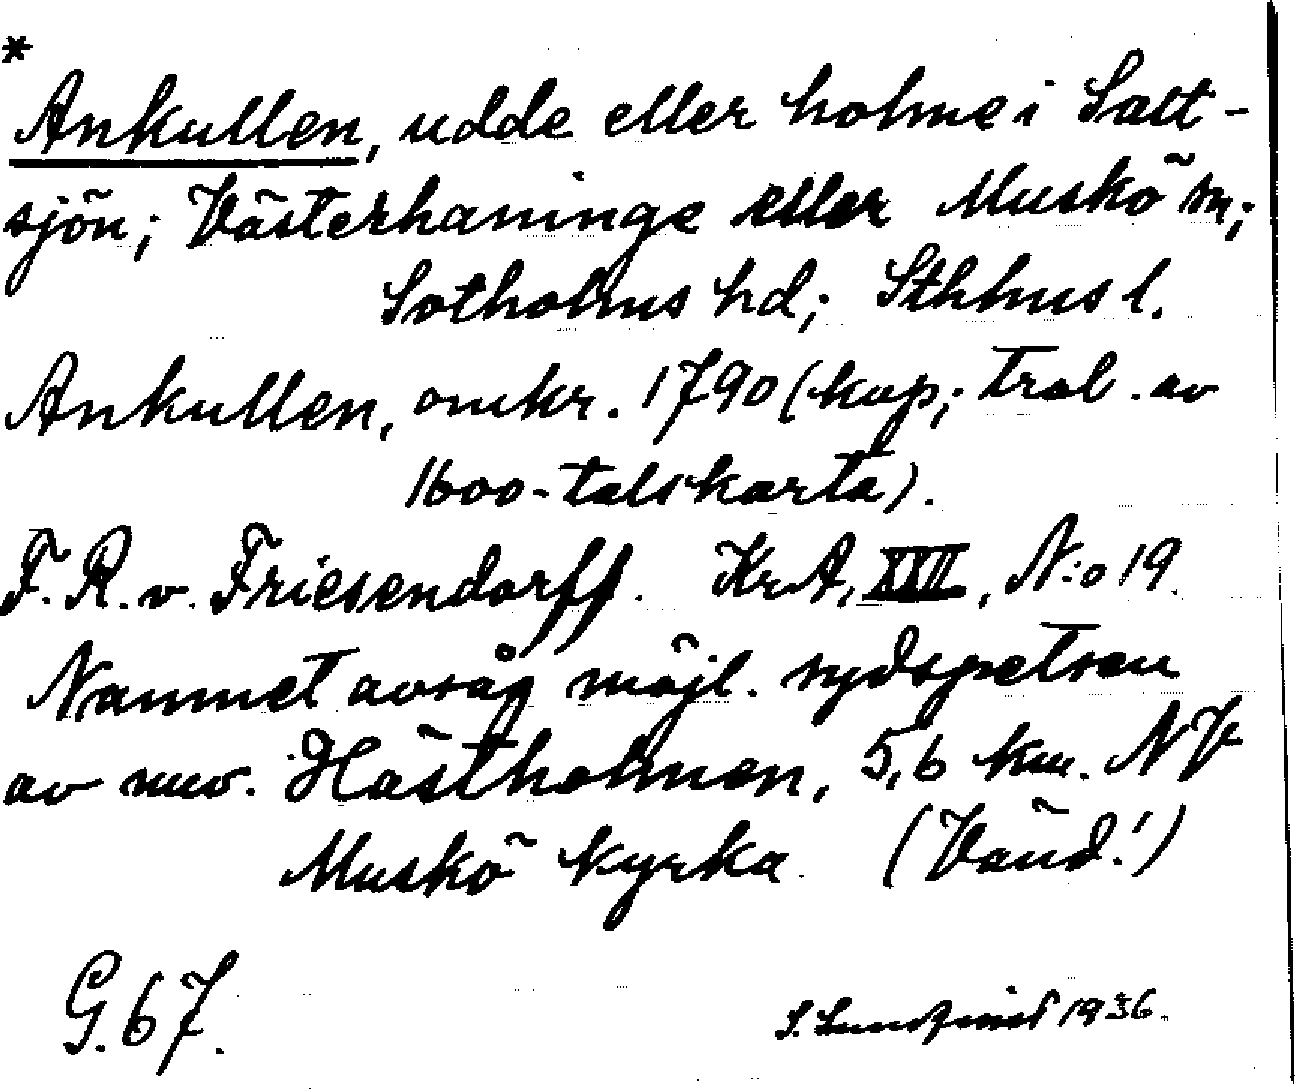 *
Ankullen, udde eller holme i Salt-
sjön; Västerhaninge eller Muskö sn;
Sotholms hd; Sthlms l.
Ankullen, omkr. 1790 (kop; trol. av
1600-talskarta).
F. R. v. Friesendorff. KrA, XVII, N:o 19.
Namnet avsåg möjl. sydspetsen
av nuv. Hästholmen, 5,6 km. NV
Muskö kyrka. (Vänd!)
G. 67.
S. Lundqvist 1936.